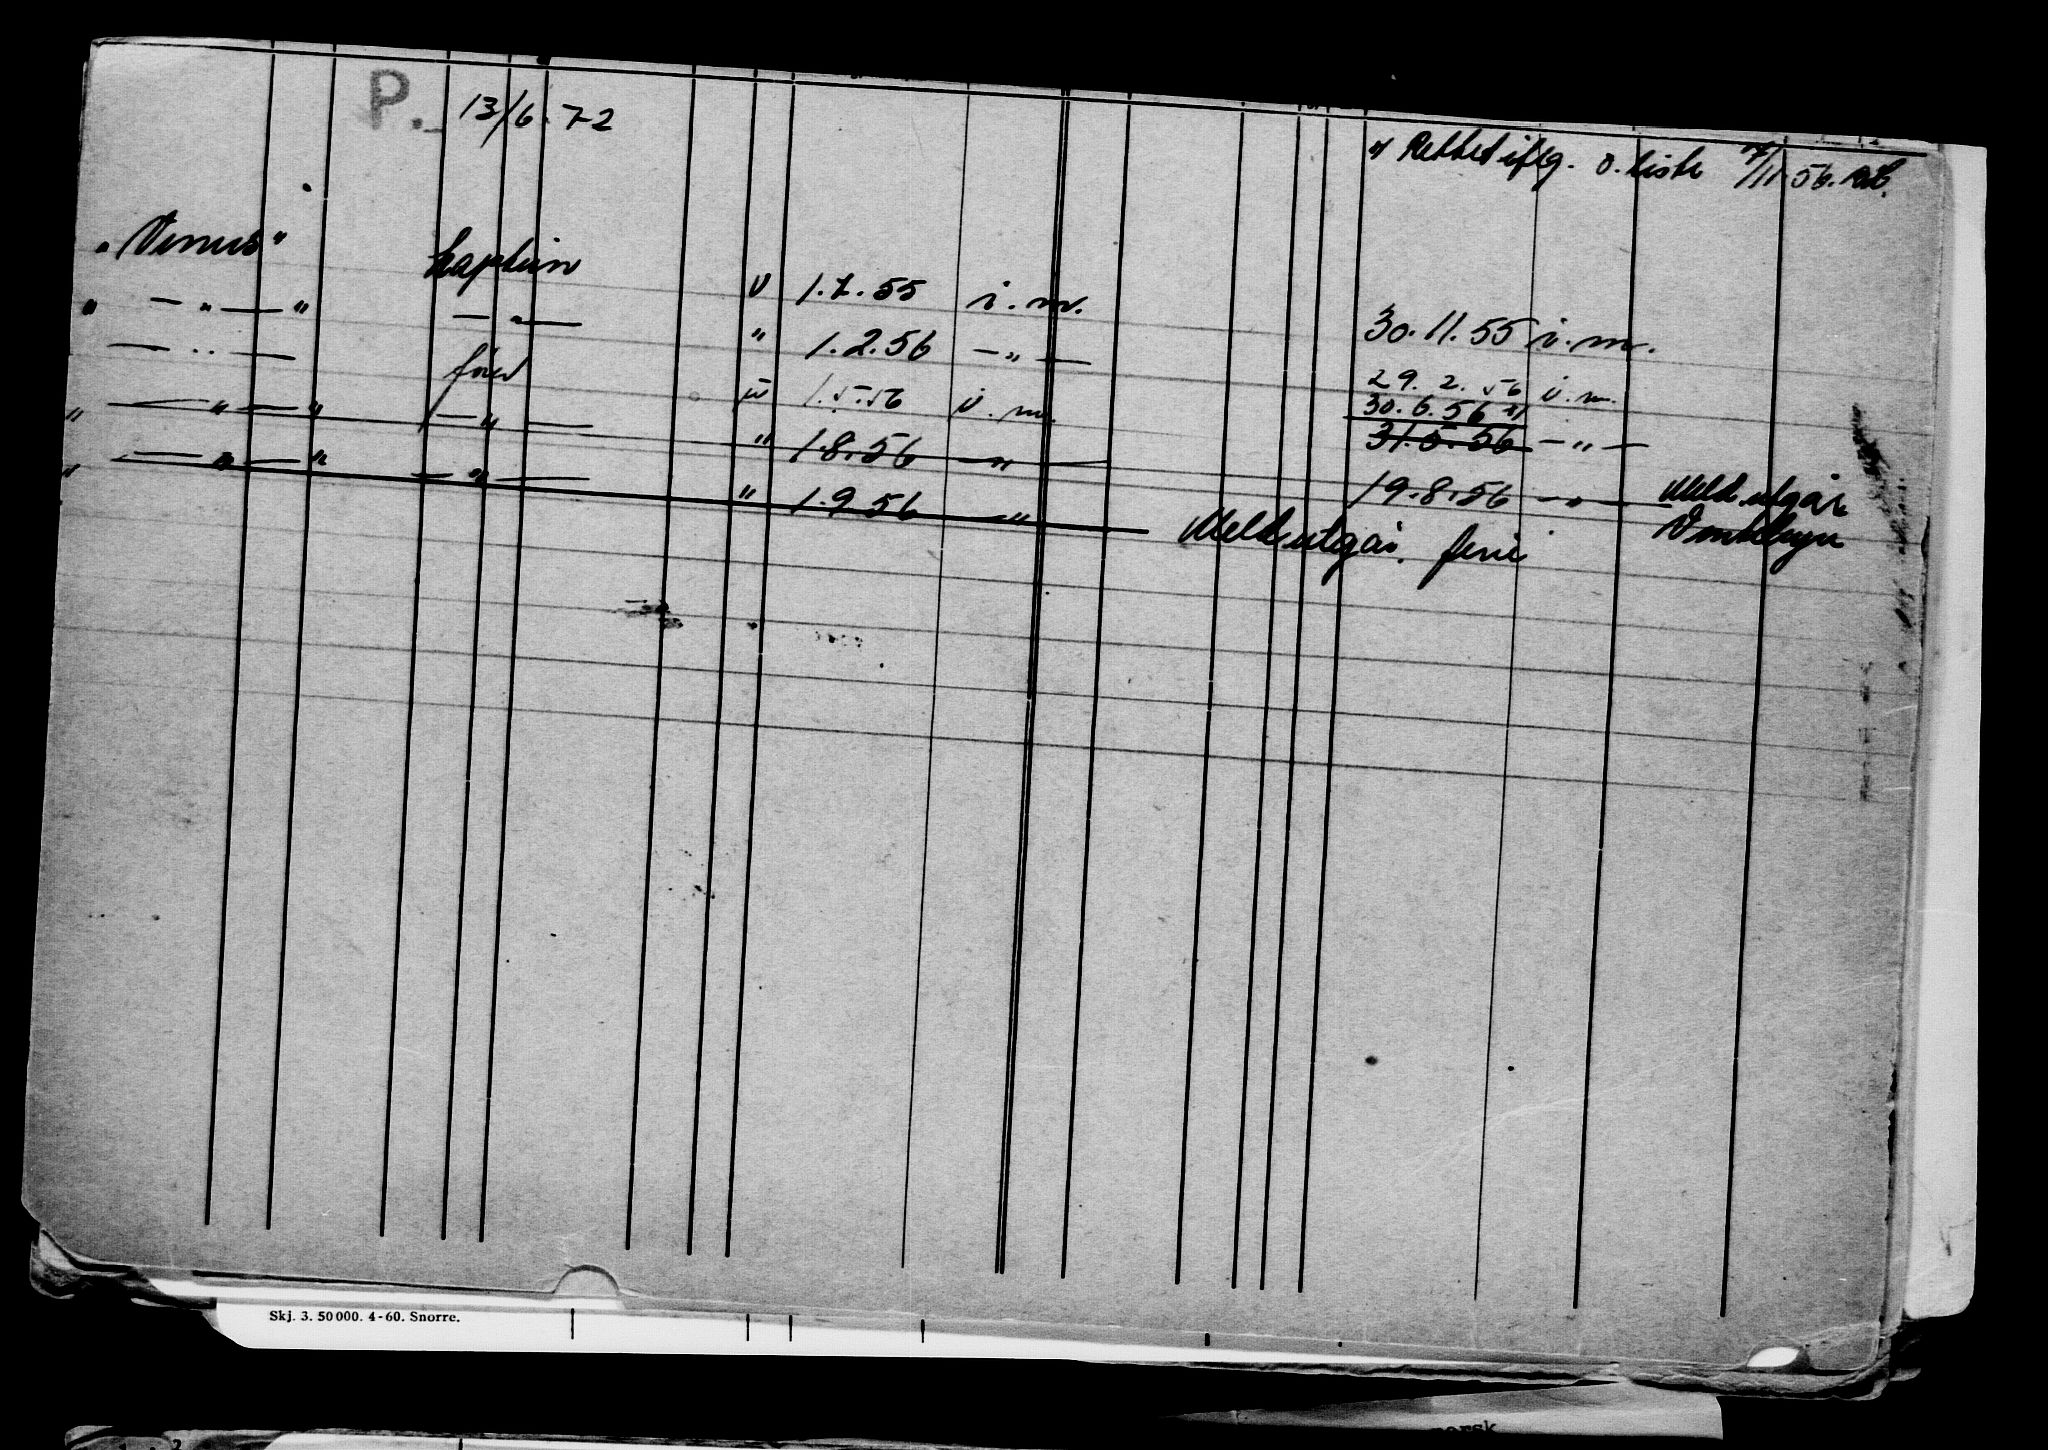 P. 13/6.72
*) Rettet iflg. o. liste 7/11.56.
"Venus" kaptein v 1.7.55 i.m. 30.11.55 i.m.
" — " — " — " — " 1.2.56 — " — 29.2.56 i.m.
— " — fører w 1.5.56 i.m. 30.6.56 *)
31.5.56 — " —
" — " — " — " — " 1.8.56 — " — 19.8.56 — " — Meld. utgår
" — " — " — " — " 1.9.56 — " — Meld. utgår. ferie
Skj. 3. 50 000. 4-60. Snorre.
norsk